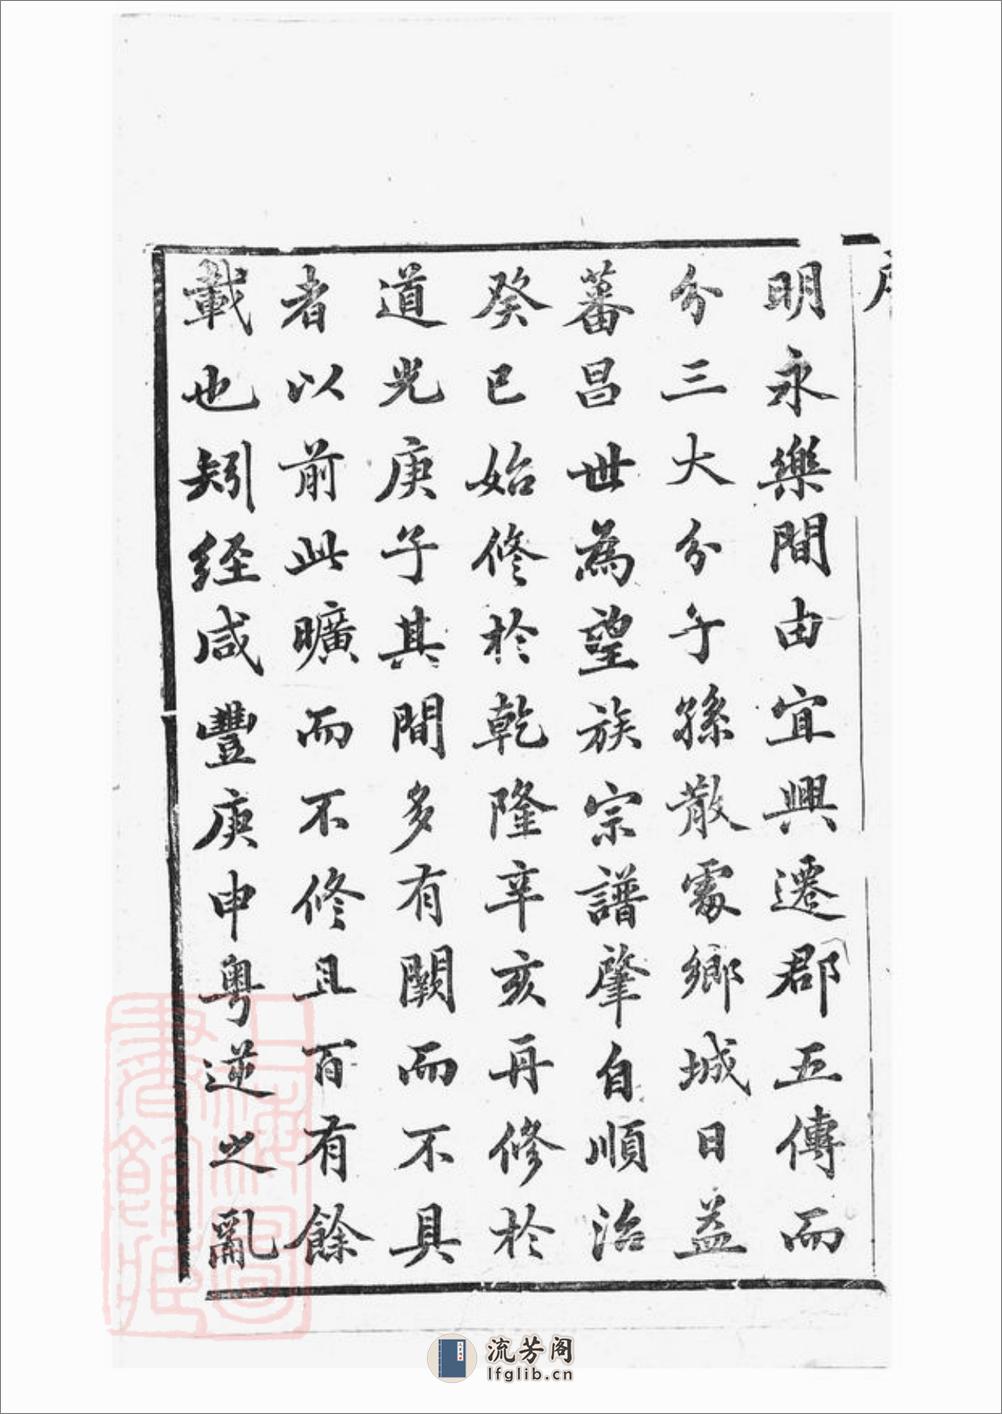 明永樂間由宜興遷郡五傳而
分三大分子孫散處鄉城日益
蕃昌世為望族宗譜肇自順治
癸巳始修於乾隆辛亥再修於
道光庚子其間多有闕而不具
者以前此曠而不修且百有餘
載也矧经咸豐庚申粤逆之亂
上海圖書館藏
流芳阁
lfglib.cn